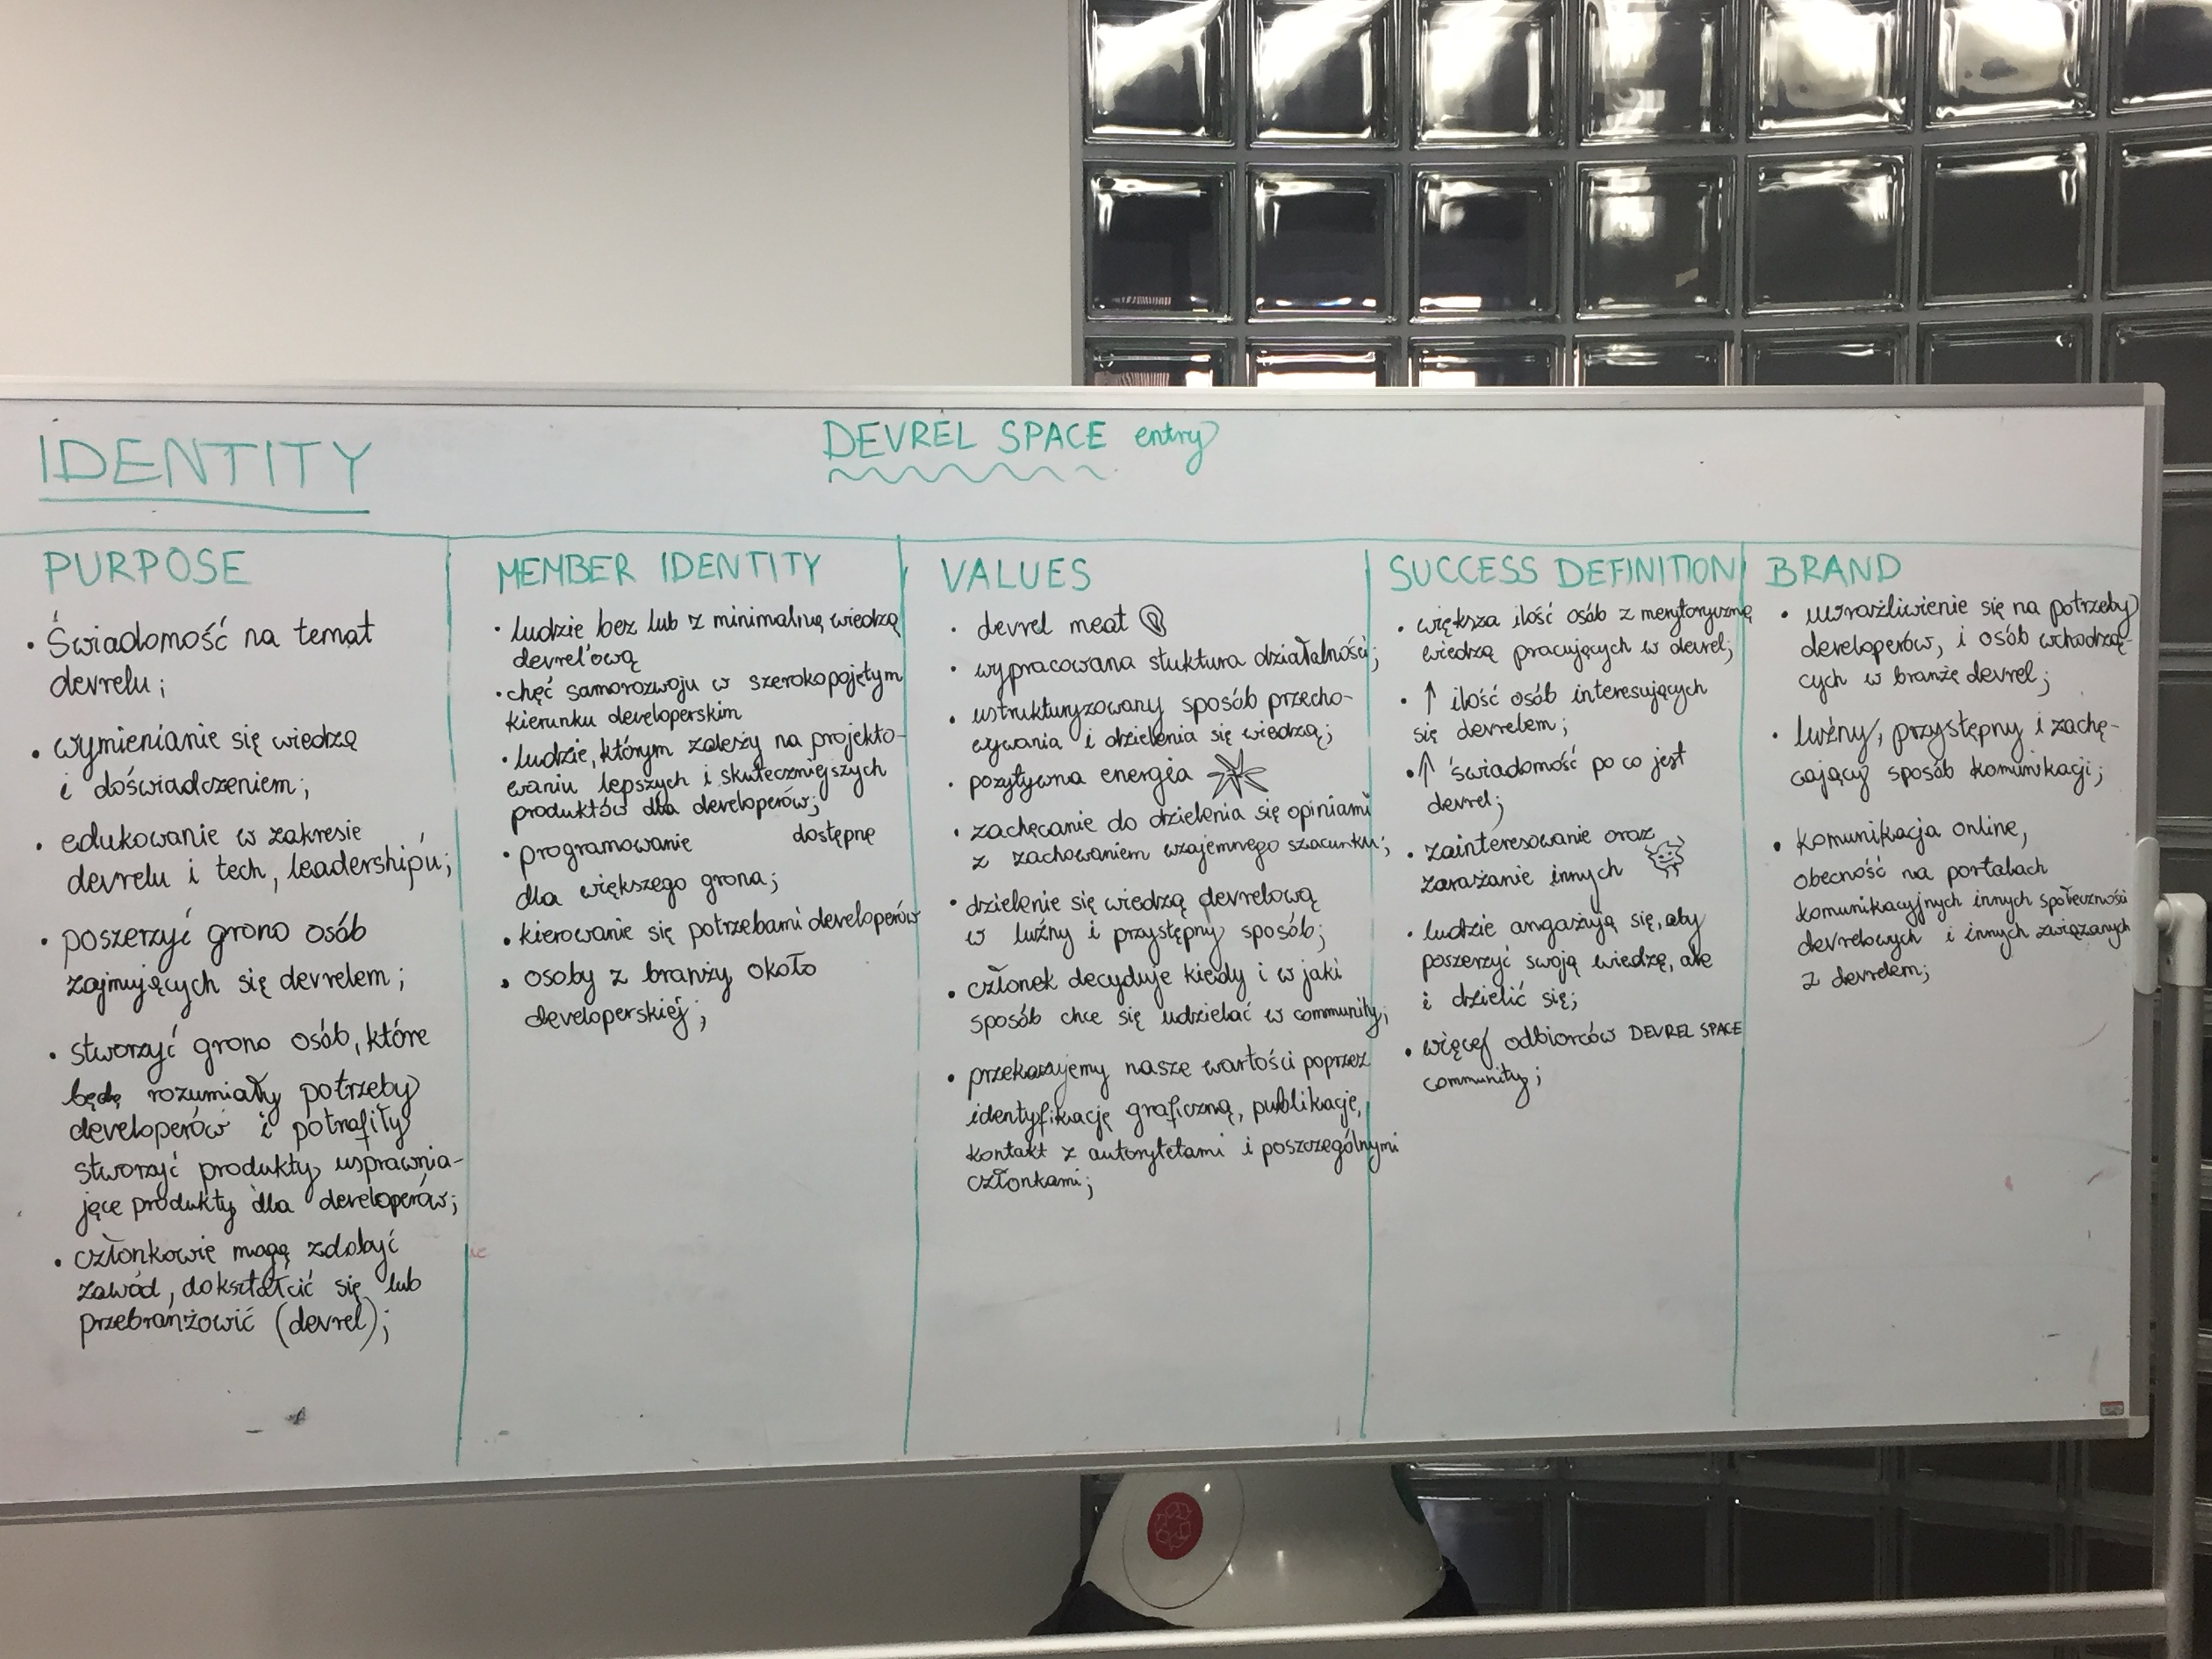 IDENTITY
DEVREL SPACE entry
PURPOSE
• Świadomość na temat
devrelu;
• wymienianie się wiedzą
i doświadczeniem;
• edukowanie w zakresie
devrelu i tech, leadershipu;
• poszerzyć grono osób
zajmujących się devrelem;
• stworzyć grono osób, które
będą rozumiały potrzeby
developerów i potrafiły
stworzyć produkty usprawnia-
jące produkty dla developerów;
• członkowie mogą zdobyć
zawód, dokształcić się lub
przebranżowić (devrel);
MEMBER IDENTITY
• ludzie bez lub z minimalną wiedzą
devrel'ową
• chęć samorozwoju w szerokopojętym
kierunku developerskim
• ludzie, którym zależy na projekto-
waniu lepszych i skuteczniejszych
produktów dla developerów;
• programowanie dostępne
dla większego grona;
• kierowanie się potrzebami developerów
• osoby z branży około
developerskiej;
VALUES
• devrel meat
• wypracowana stuktura działalności;
• ustrukturyzowany sposób przecho-
wywania i dzielenia się wiedzą;
• pozytywna energia
• zachęcanie do dzielenia się opiniami
z zachowaniem wzajemnego szacunku;
• dzielenie się wiedzą devrelową
w luźny i przystępny sposób;
• członek decyduje kiedy i w jaki
sposób chce się udzielać w community;
• przekazujemy nasze wartości poprzez
identyfikację graficzną, publikacje,
kontakt z autorytetami i poszczególnymi
członkami;
SUCCESS DEFINITION
• większa ilość osób z merytoryczną
wiedzą pracujących w devrel;
• ↑ ilość osób interesujących
się devrelem;
• ↑ świadomość po co jest
devrel;
• zainteresowanie oraz
zarażanie innych
• ludzie angażują się, aby
poszerzyć swoją wiedzę, ale
i dzielić się;
• więcej odbiorców DEVREL SPACE
community;
BRAND
• uwrażliwienie się na potrzeby
developerów, i osób wchodzą-
cych w branżę devrel;
• luźny, przystępny i zachę-
cający sposób komunikacji;
• komunikacja online,
obecność na portalach
komunikacyjnych innych społeczności
devrelowych i innych związanych
z devrelem;